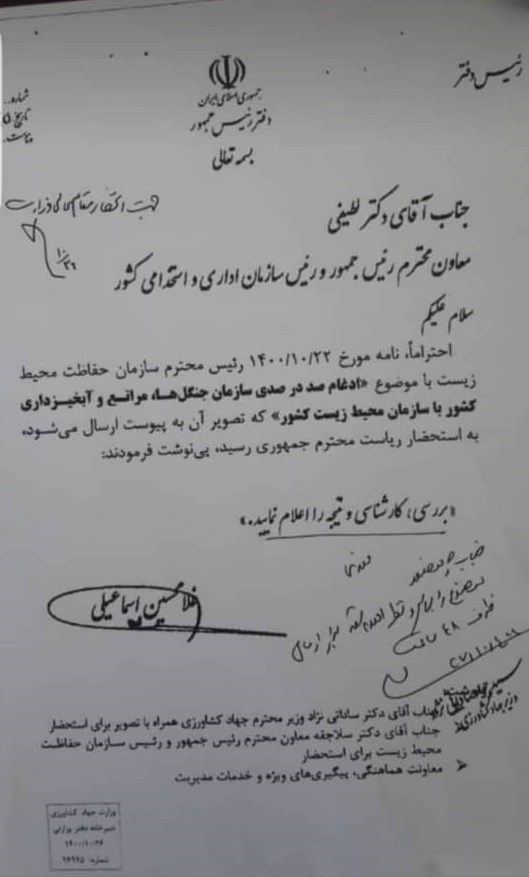 رئیس دفتر
جمهوری اسلامی ایران
دفتر رئیس جمهور
بسمه تعالی
شماره..
تاریخ:
پیوست:
جهت استحضار مقام عالی وزارت
۱۰/۲۶
جناب آقای دکتر لطیفی
معاون محترم رئیس جمهور و رئیس سازمان اداری و استخدامی کشور
سلام علیکم
احتراماً، نامه مورخ ۱۴۰۰/۱۰/۲۲ رئیس محترم سازمان حفاظت محیط
زیست با موضوع «ادغام صد در صدی سازمان جنگل‌ها، مراتع و آبخیزداری
کشور با سازمان محیط زیست کشور» که تصویر آن به پیوست ارسال می‌شود،
به استحضار ریاست محترم جمهوری رسید، پی‌نوشت فرمودند:
«بررسی، کارشناسی و نتیجه را اعلام نمایید.»
غلامحسین اسماعیلی
ظرف ۴۸ ساعت
جناب آقای دکتر ساداتی نژاد وزیر محترم جهاد کشاورزی همراه با تصویر برای استحضار
جناب آقای دکتر سلاجقه معاون محترم رئیس جمهور و رئیس سازمان حفاظت
محیط زیست برای استحضار
معاونت هماهنگی، پیگیری‌های ویژه و خدمات مدیریت
وزارت جهاد کشاورزی
دبیرخانه دفتر وزارتی
۱۴۰۰/۱۰/۲۶
شماره: